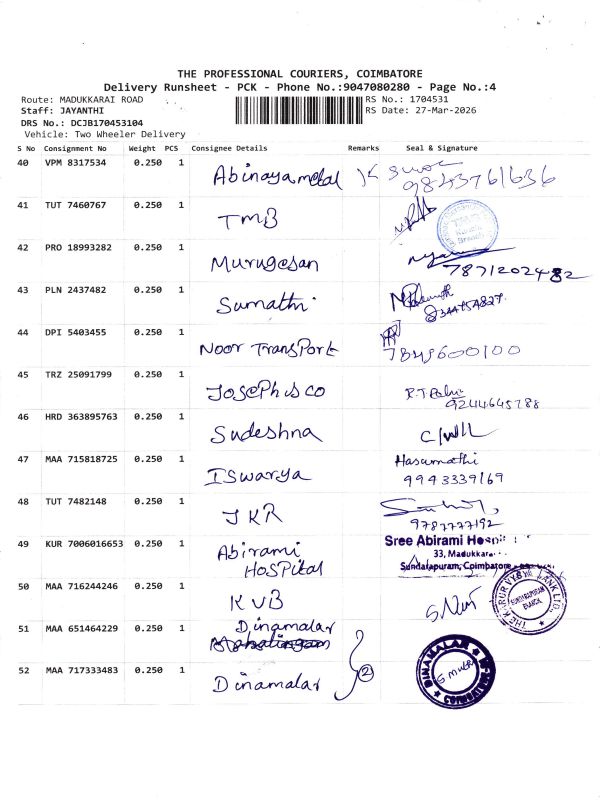 THE PROFESSIONAL COURIERS, COIMBATORE
Delivery Runsheet - PCK - Phone No.:9047080280 - Page No.:4
Route: MADUKKARAI ROAD RS No.: 1704531
Staff: JAYANTHI RS Date: 27-Mar-2026
DRS No.: DCJB170453104
Vehicle: Two Wheeler Delivery
S No Consignment No Weight PCS Consignee Details Remarks Seal & Signature
40 VPM 8317534 0.250 1 Abinayametal 9843761636
41 TUT 7460767 0.250 1 TMB
42 PRO 18993282 0.250 1 Murugesan 7871202482
43 PLN 2437482 0.250 1 Sumathi
44 DPI 5403455 0.250 1 Noor Transport 7849600100
45 TRZ 25091799 0.250 1 Josephisco 9244645788
46 HRD 363895763 0.250 1 Sudeshna
47 MAA 715818725 0.250 1 Iswarya Hasumathi
9943339169
48 TUT 7482148 0.250 1 JKR
9787777192
49 KUR 7006016653 0.250 1 Abirami Hospital Sree Abirami Hospit
33, Madukkara
Sundarapuram, Coimbatore
50 MAA 716244246 0.250 1 KVB THE KARUR VYSYA BANK LTD. SUNDARAPURAM BRANCH
51 MAA 651464229 0.250 1 Dinamalar
52 MAA 717333483 0.250 1 Dinamalar 2 DINAMALAR COIMBATORE